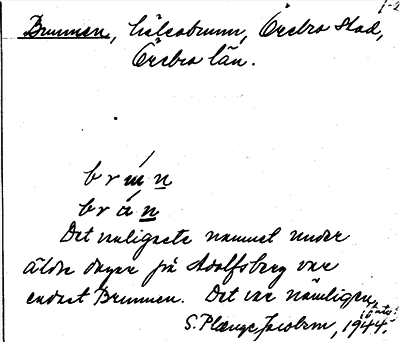 1-2
Brunnen, hälsobrunn, Örebro stad,
Örebro län.
brún̲
brán̲
Det vanligaste namnet under
äldre dagar på Adolfsberg var
endast Brunnen. Det var nämligen
S. Plænge Jacobson, 1944.